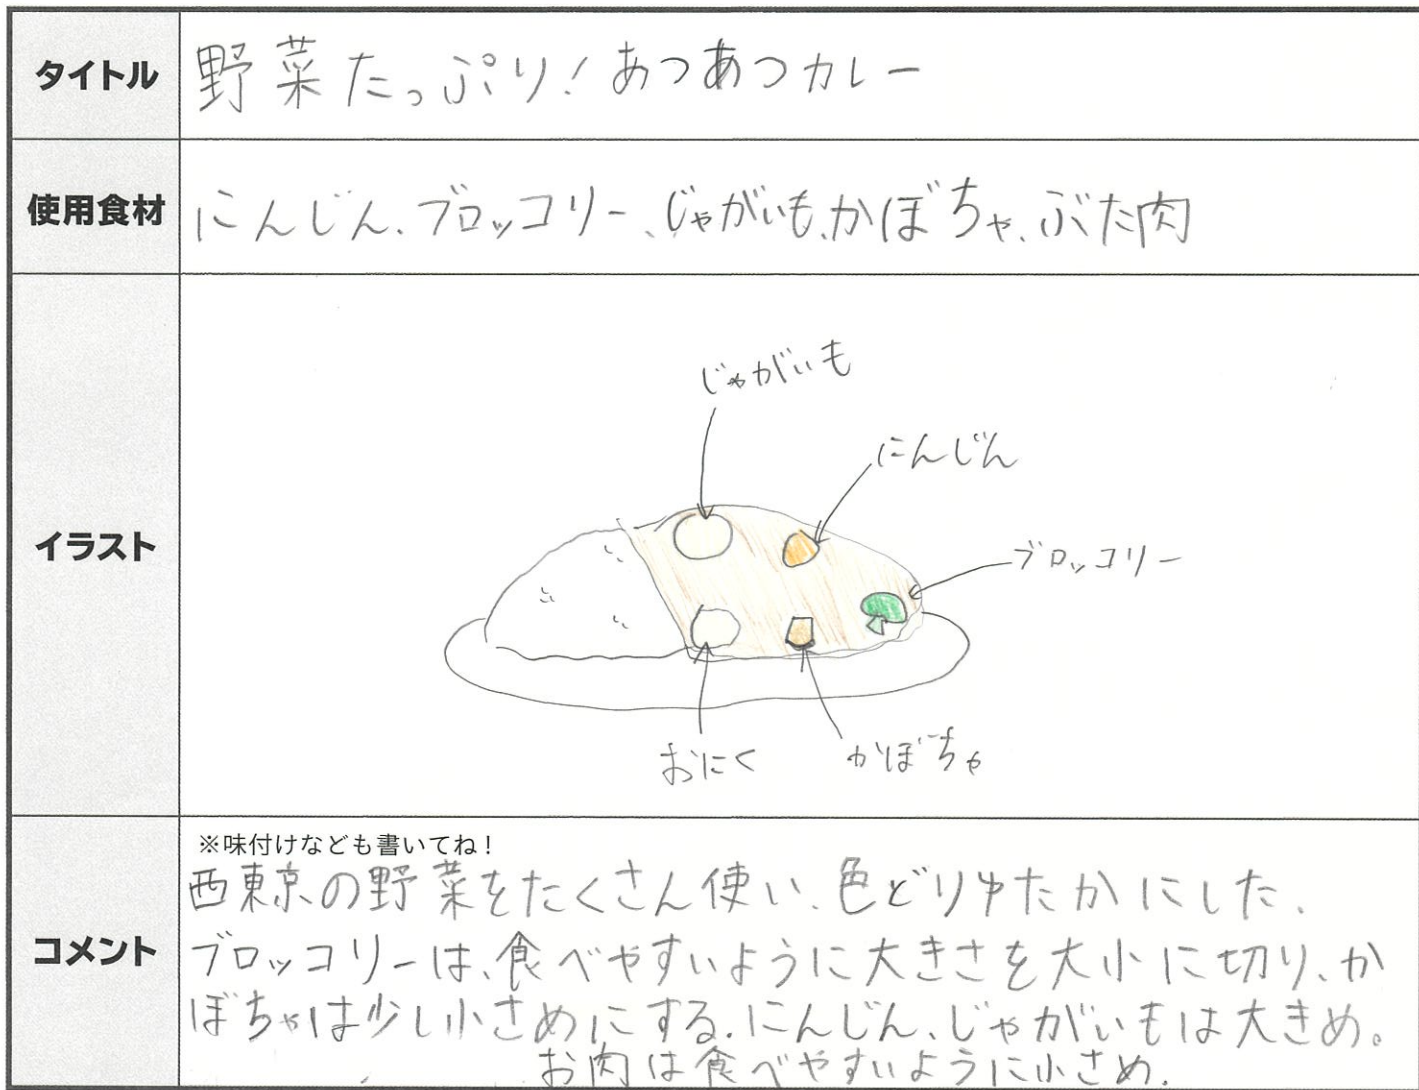 タイトル
野菜たっぷり!あつあつカレー
使用食材
にんじん、ブロッコリー、じゃがいも、かぼちゃ、ぶた肉
イラスト
じゃがいも
にんじん
ブロッコリー
おにく
かぼちゃ
コメント
※味付けなども書いてね!
西東京の野菜をたくさん使い、色どりゆたかにした。
ブロッコリーは、食べやすいように大きさを大小に切り、か
ぼちゃは少し小さめにする。にんじん、じゃがいもは大きめ。
お肉は食べやすいように小さめ。